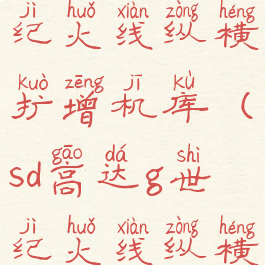 jì huǒ xiàn zòng héng
纪火线纵横
kuò zēng jī kù
扩增机库(
gāo dá shì
sd高达g世
jì huǒ xiàn zòng héng
纪火线纵横